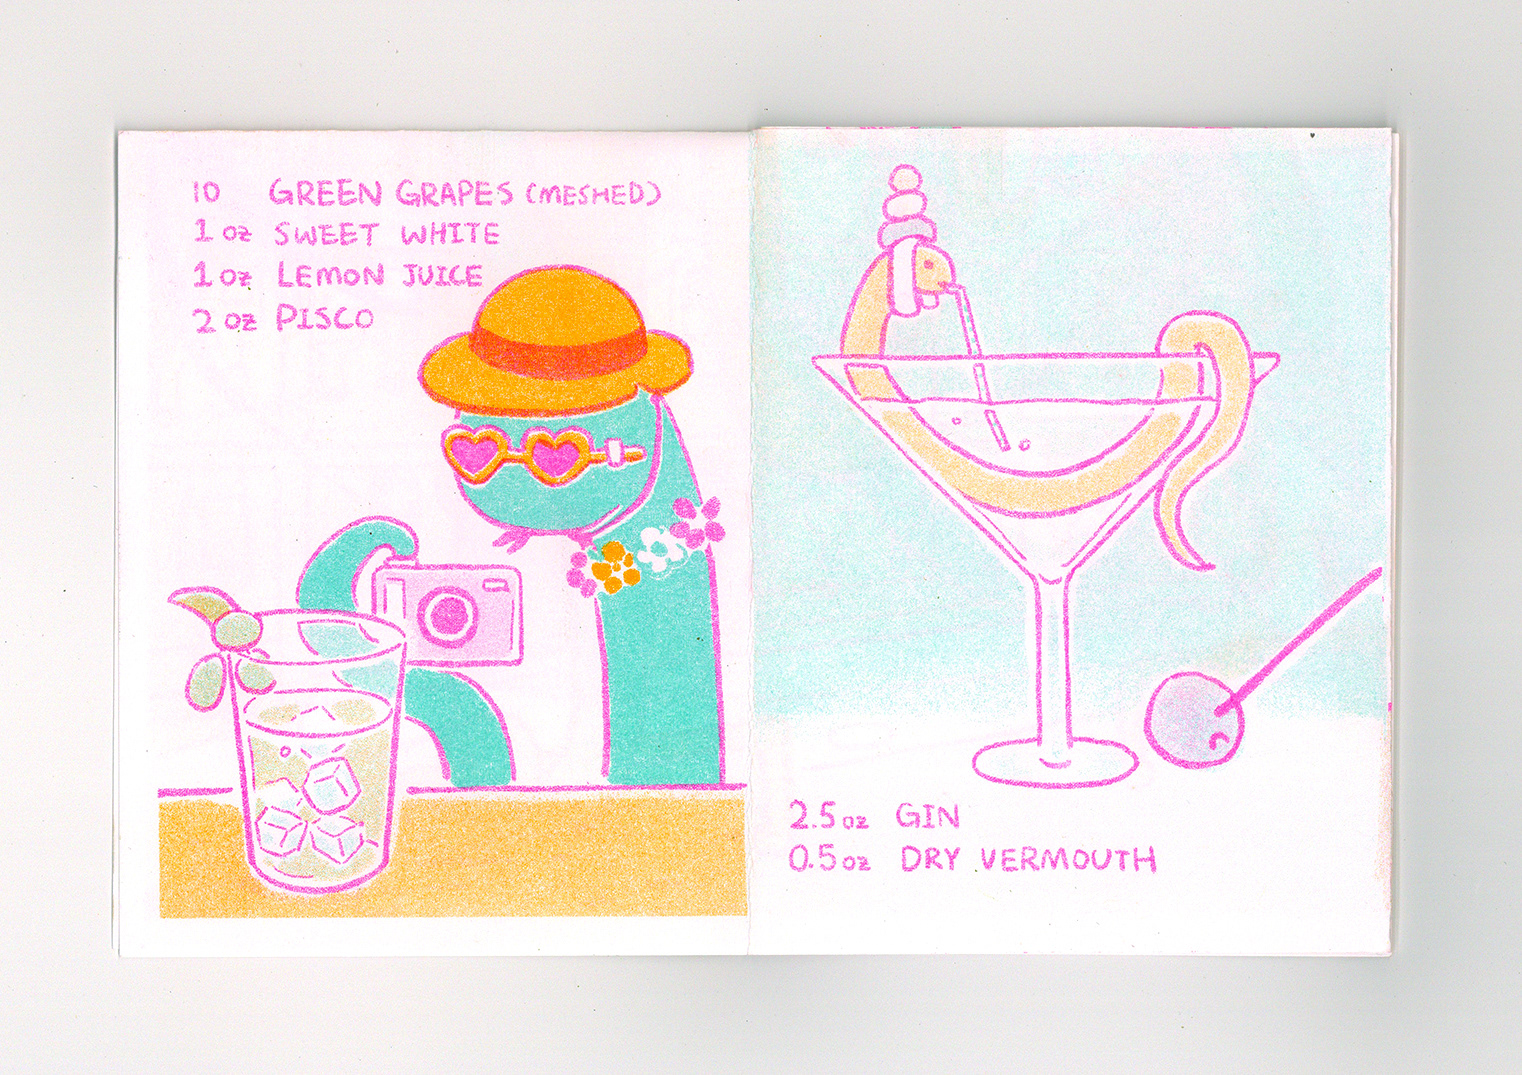 10 GREEN GRAPES (MESHED)
1 oz SWEET WHITE
1 oz LEMON JUICE
2 oz PISCO
2.5 oz GIN
0.5 oz DRY VERMOUTH